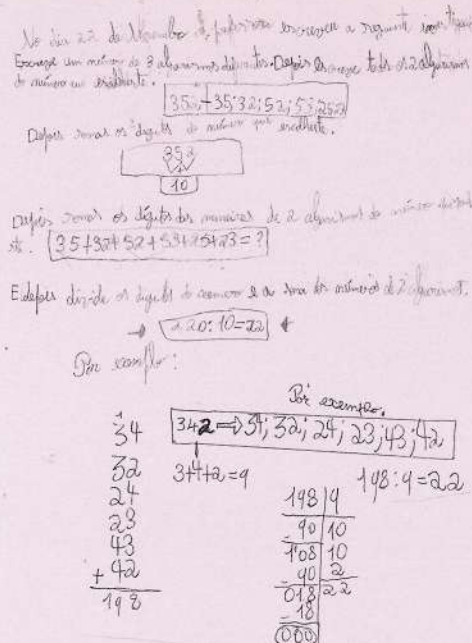 No dia 22 de Novembro a professora escreveu a seguinte
Escreve um número de 3 algarismos diferentes. Depois escreve todos os 2 algarismos
do número que escolheste.
352→35;32;52;53;25;23
Depois somas os dígitos do número que escolheste.
352
10
Depois somas os dígitos dos números de 2 algarismos do número
35+32+52+53+25+23=?
E depois divide os dígitos do número e a soma dos números de 2 algarismos.
→ 220:10=22
Por exemplo:
Por exemplo.
342⇒34; 32; 24; 23; 43; 42
3+4+2=9
198:9=22
1
34
32
24
23
43
+ 42
198
198 | 9
- 90 | 10
108 | 10
- 90 | 2
018 | 22
- 18
000